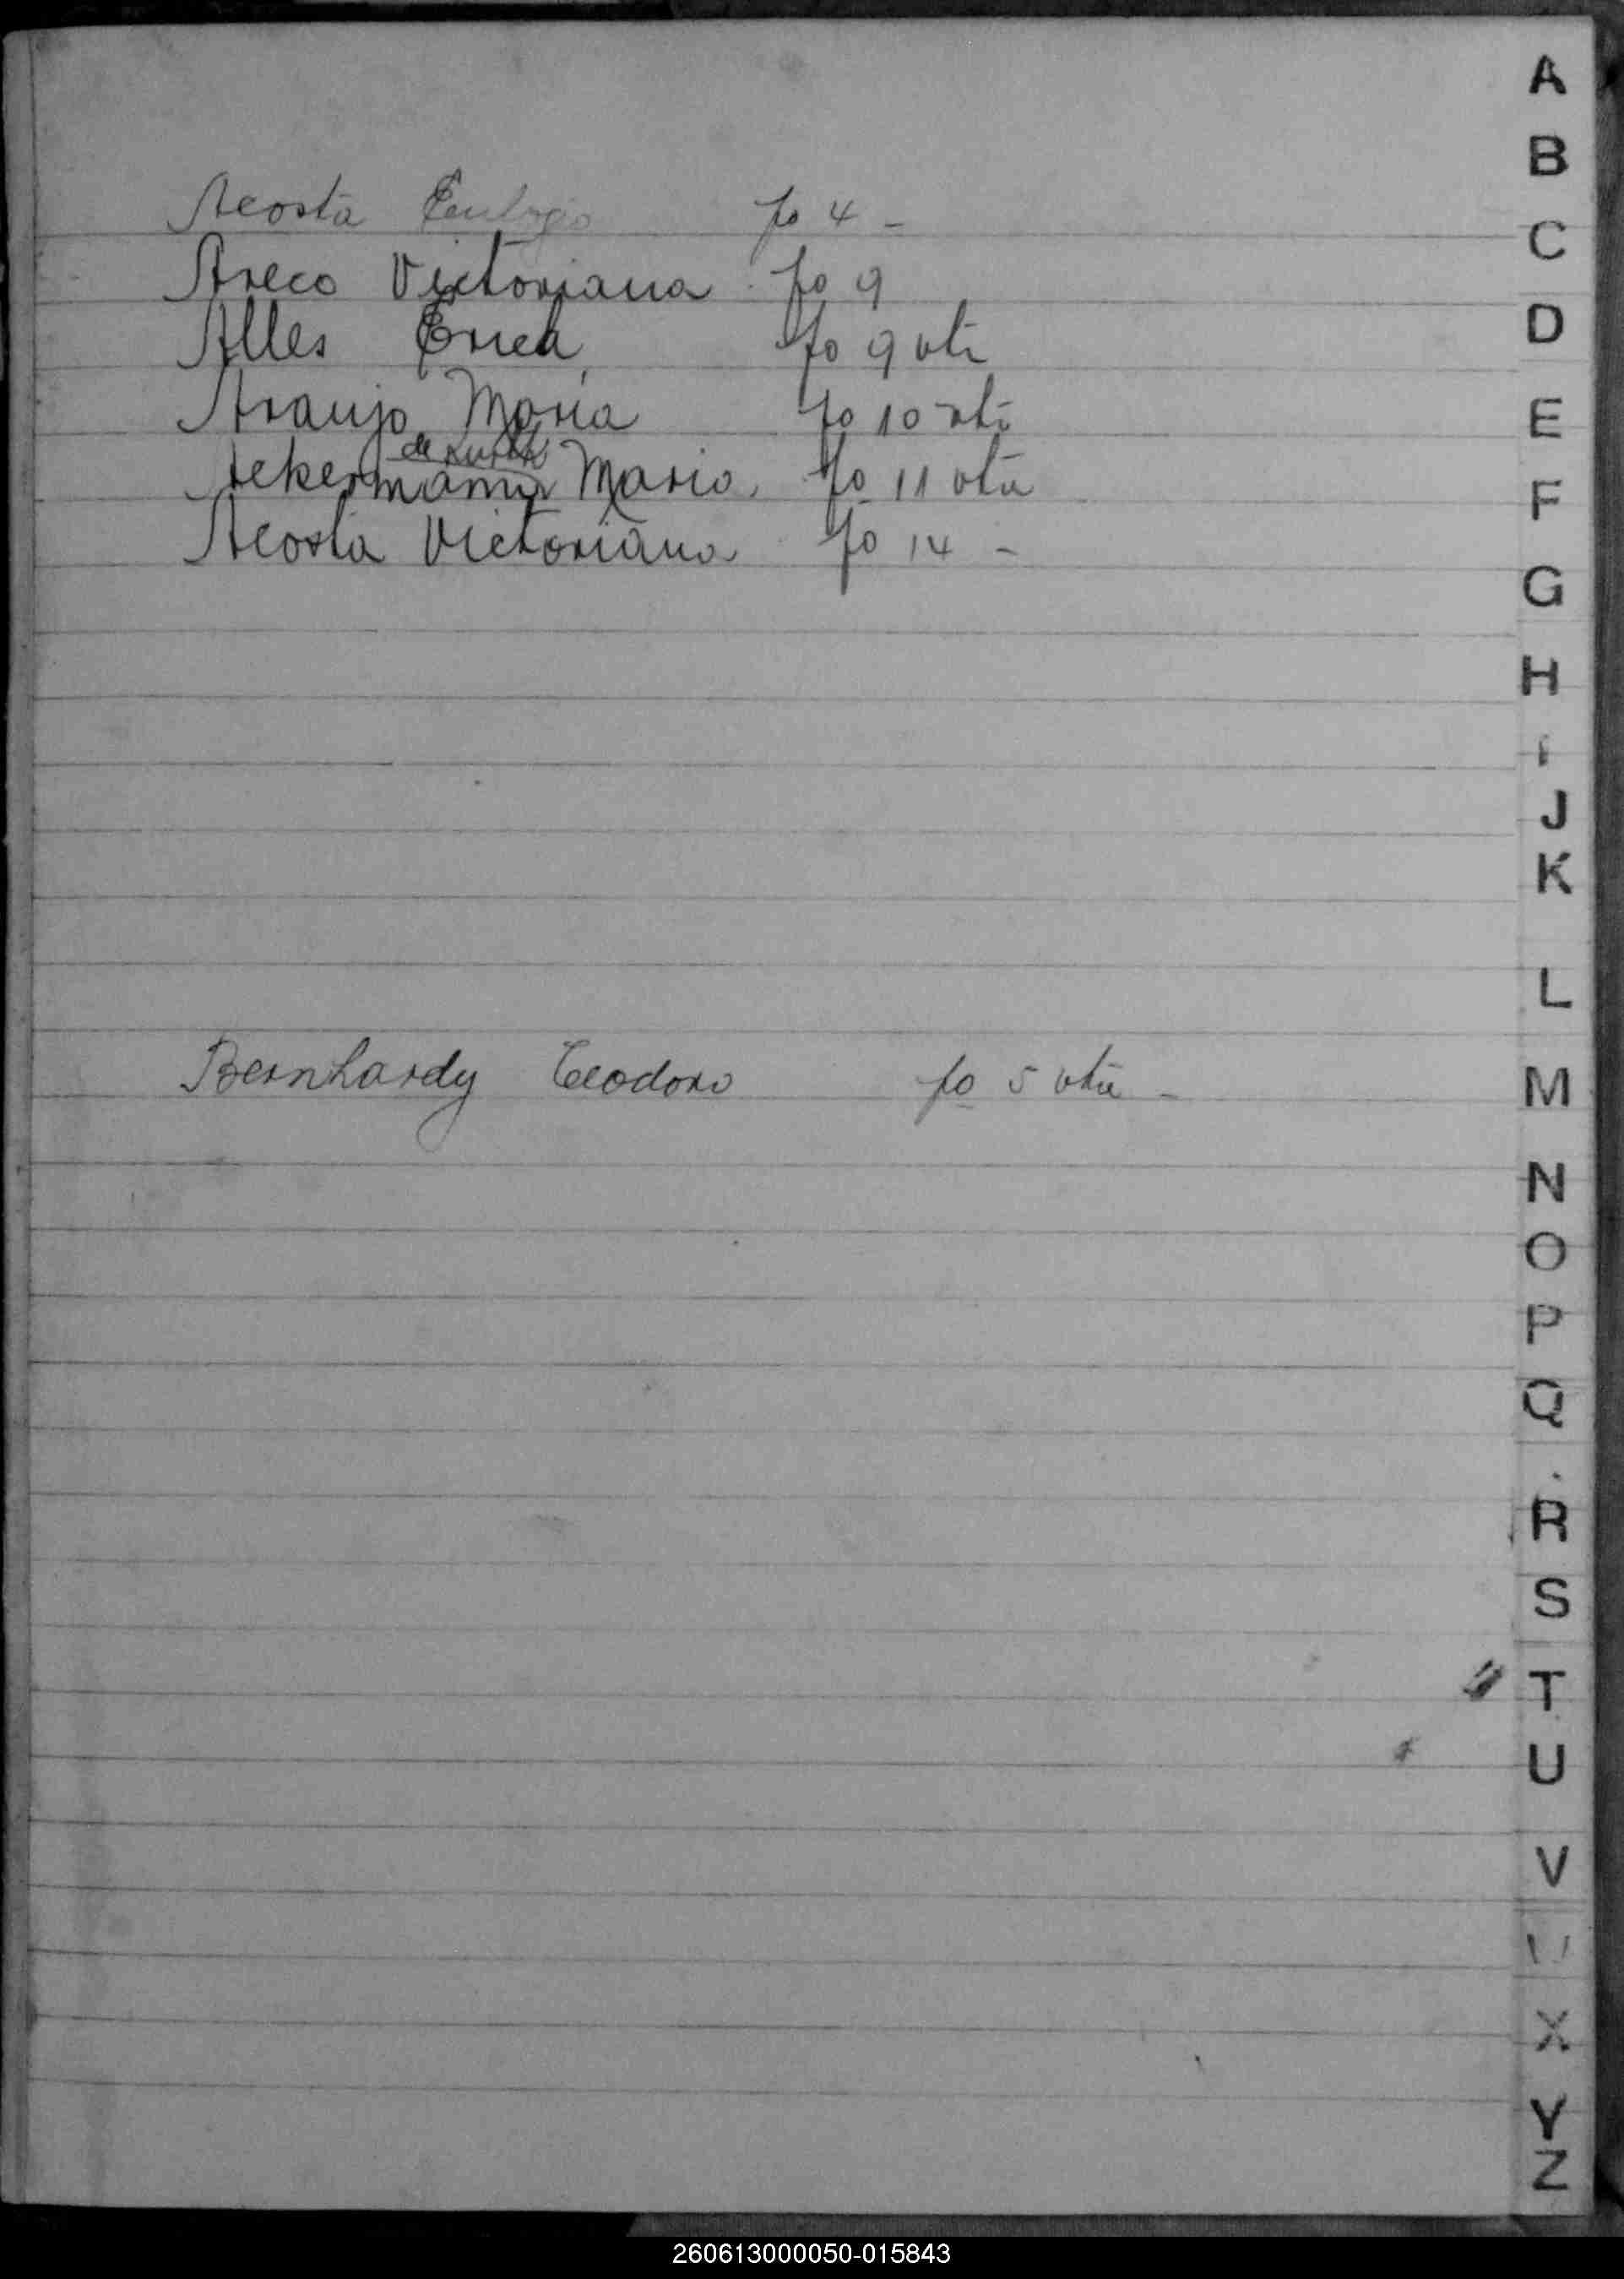 A
B
Acosta Eulogio fo 4 -
C
Areco Victoriana fo 9
D
Alles Erich fo 9 vta
E
Araujo Maria fo 10 vta
de
Ackermann Maria fo 11 vta
F
Acosta Victoriana fo 14 -
G
H
I
J
K
L
Bernhardy Teodoro fo 5 vta -
M
N
O
P
Q
R
S
T
U
V
X
Y
Z
260613000050-015843